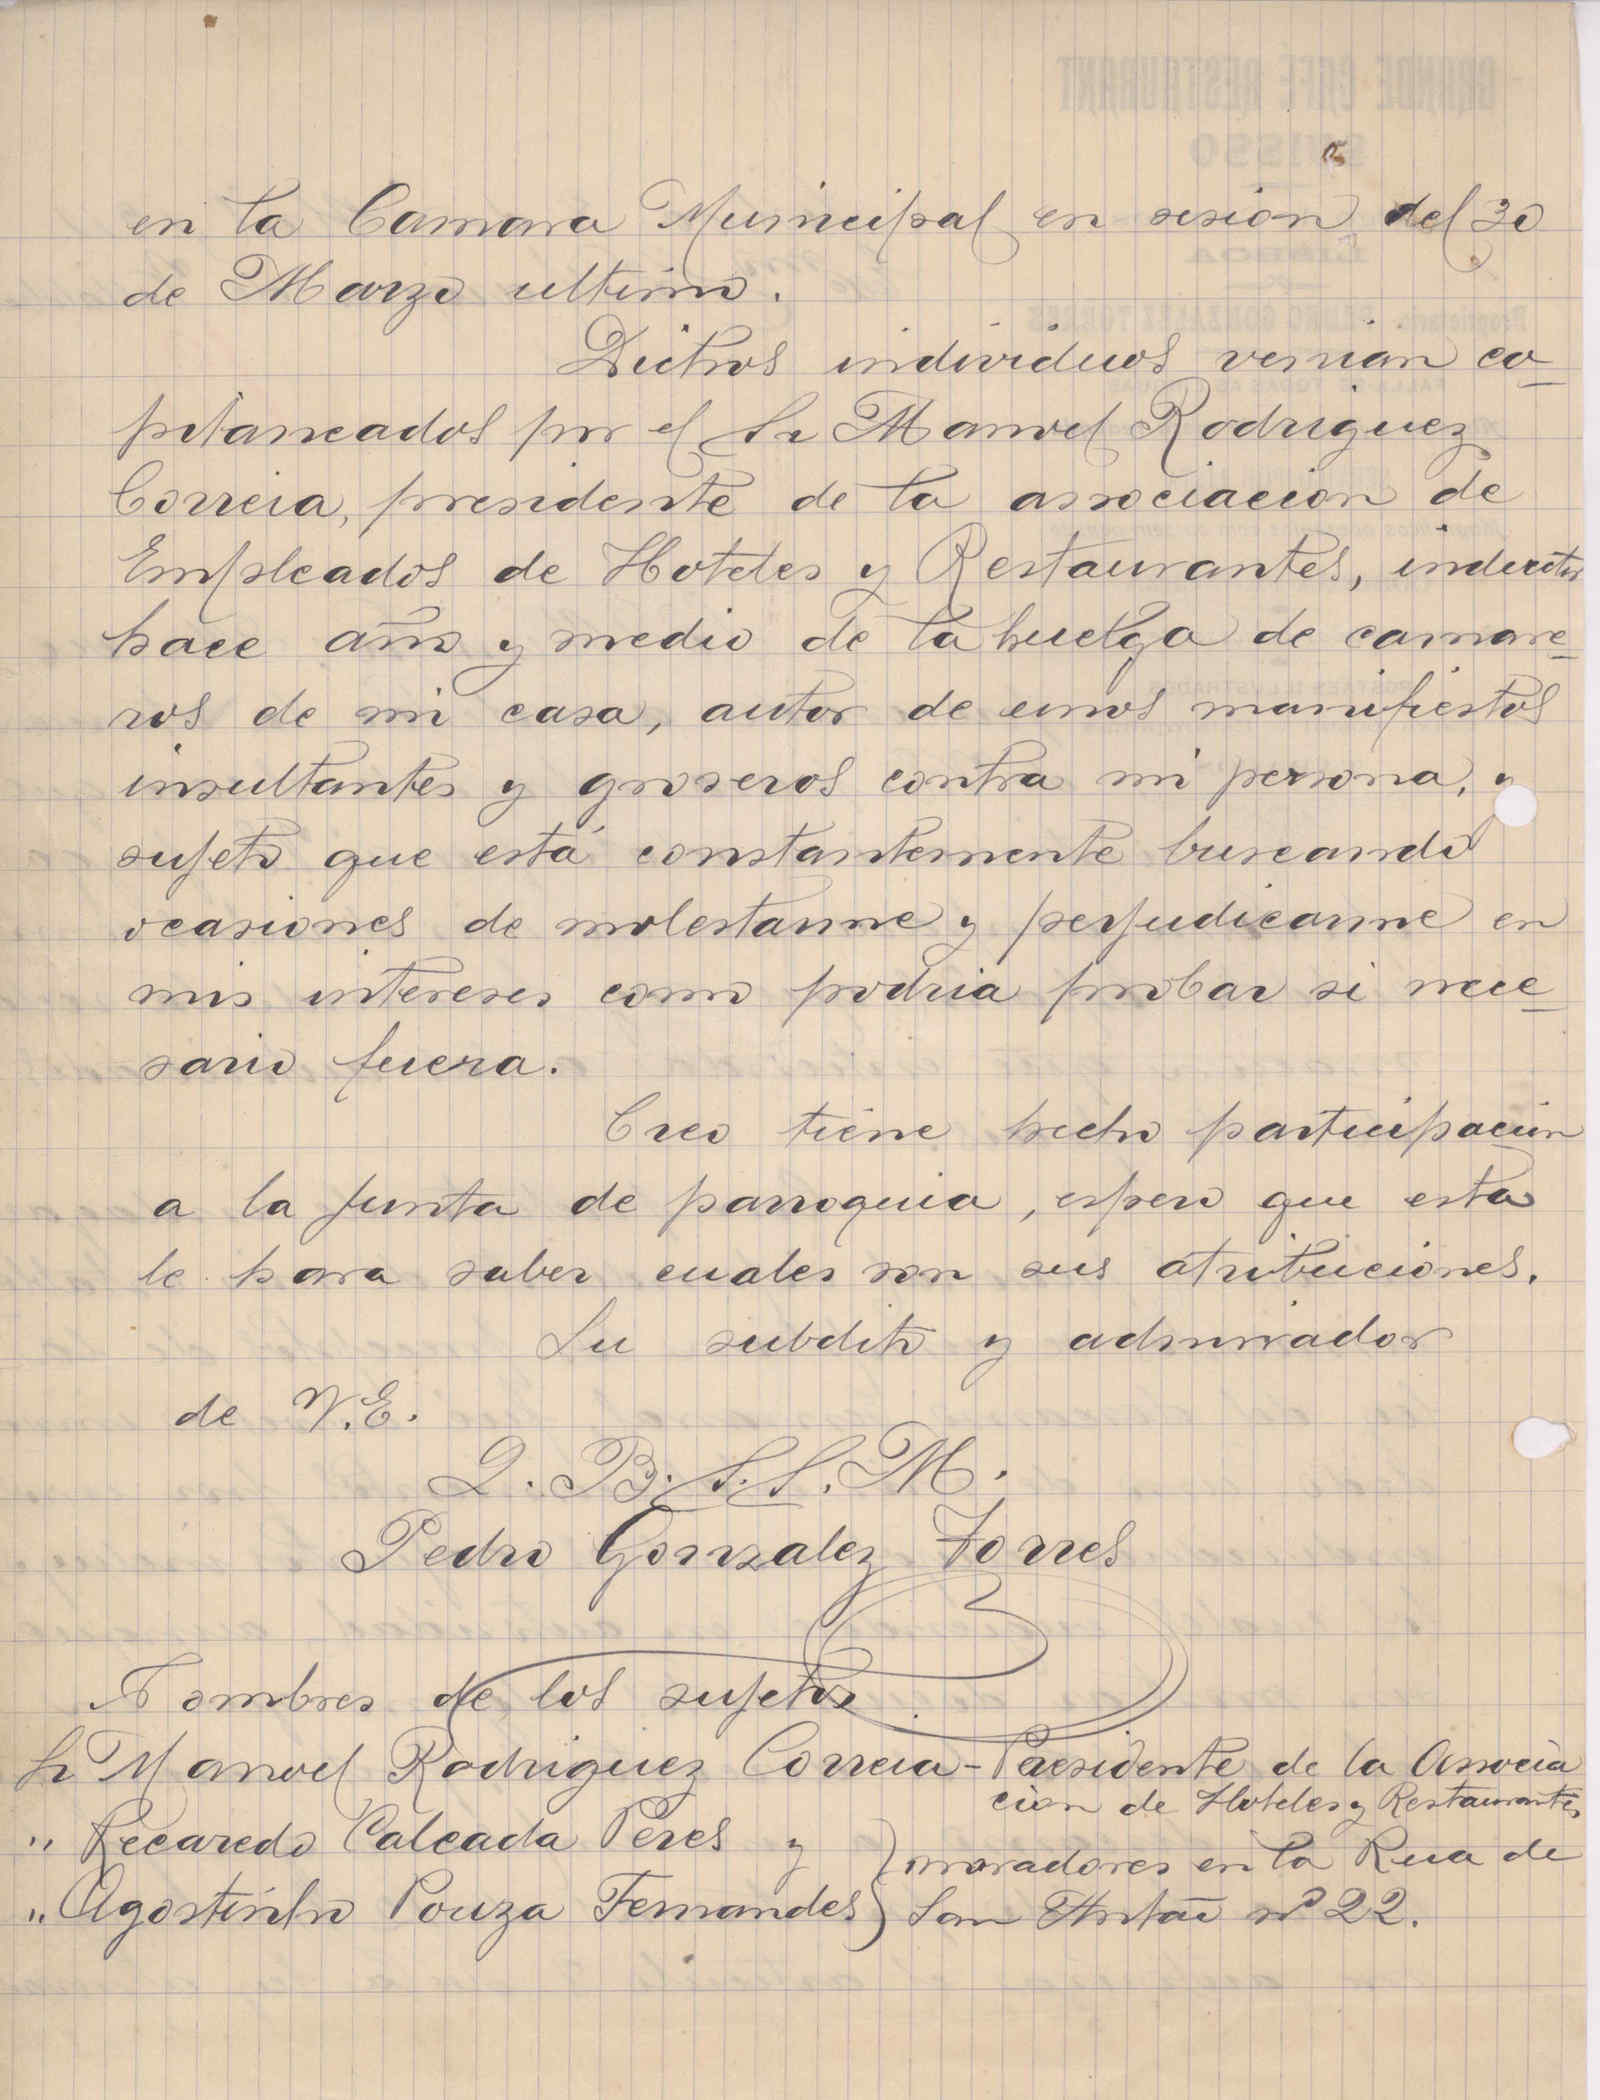 en la Camara Municipal en sesion del 30
de Marzo ultimo.
Dichos individuos venian ca-
pitaneados por el Sr Manoel Rodriguez
Correia, presidente de la associacion de
Empleados de Hoteles y Restaurantes,
hace año y medio de la huelga de camare-
ros de mi casa, autor de unos manifiestos
insultantes y groseros contra mi persona, y
sujeto que está constantemente buscando
ocasiones de molestarme y perjudicarme en
mis intereses como podria probar si nece-
sario fuera.
Creo tiene hecho participacion
a la Junta de parroquia, espero que esta
le hara saber cuales son sus atribuciones.
Su subdito y admirador
de V.E.
Q. B. S. S. M.
Pedro Gonzalez Torres
Nombres de los sujetos
Sr Manoel Rodriguez Correia - Presidente de la Associa
cion de Hoteles y Restaurantes
" Recaredo Calcada Peres y
" Agostinho Pouza Fernandes } moradores en la Rua de
San Antão nº 22.